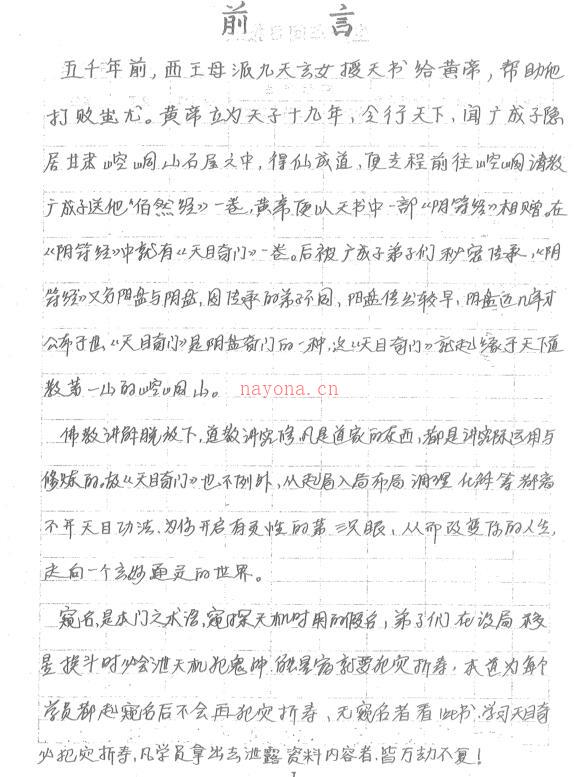 前言
五千年前，西王母派九天玄女授天书给黄帝，帮助他
打败蚩尤。黄帝立为天子十九年，令行天下，闻广成子隐
居甘肃崆峒山石屋之中，得仙成道，便专程前往崆峒请教
广成子送他《佰然经》一卷，黄帝便以天书中一部《阴符经》相赠。在
《阴符经》中就有《天目奇门》一卷。后被广成子弟子们秘密传承，《阴
符经》又分阳盘与阴盘，因传承的弟子不同，阳盘传出较早，阴盘近几年才
公布于世，《天目奇门》是阴盘奇门的一种，这《天目奇门》就起缘于天下道
教第一山的崆峒山。
nayona.cn
佛教讲解脱放下，道教讲究修，凡是道家的东西，都是讲究际运用与
修炼的。故《天目奇门》也不例外，从起局入局布局调理化解等都离
不开天目功法，为你开启有灵性的第三只眼，从而改变你的人生，
走向一个玄妙通灵的世界。
窥名，是本门之术语，窥探天机时用的假名，弟子们在设局移
星换斗时必会泄天机犯鬼神，就要犯灾折寿，本道为每个
学员都起窥名后不会再犯灾折寿，无窥名者看此书，学习天目奇
必犯灾折寿，凡学员拿出去泄露资料内容者，皆万劫不复！
I